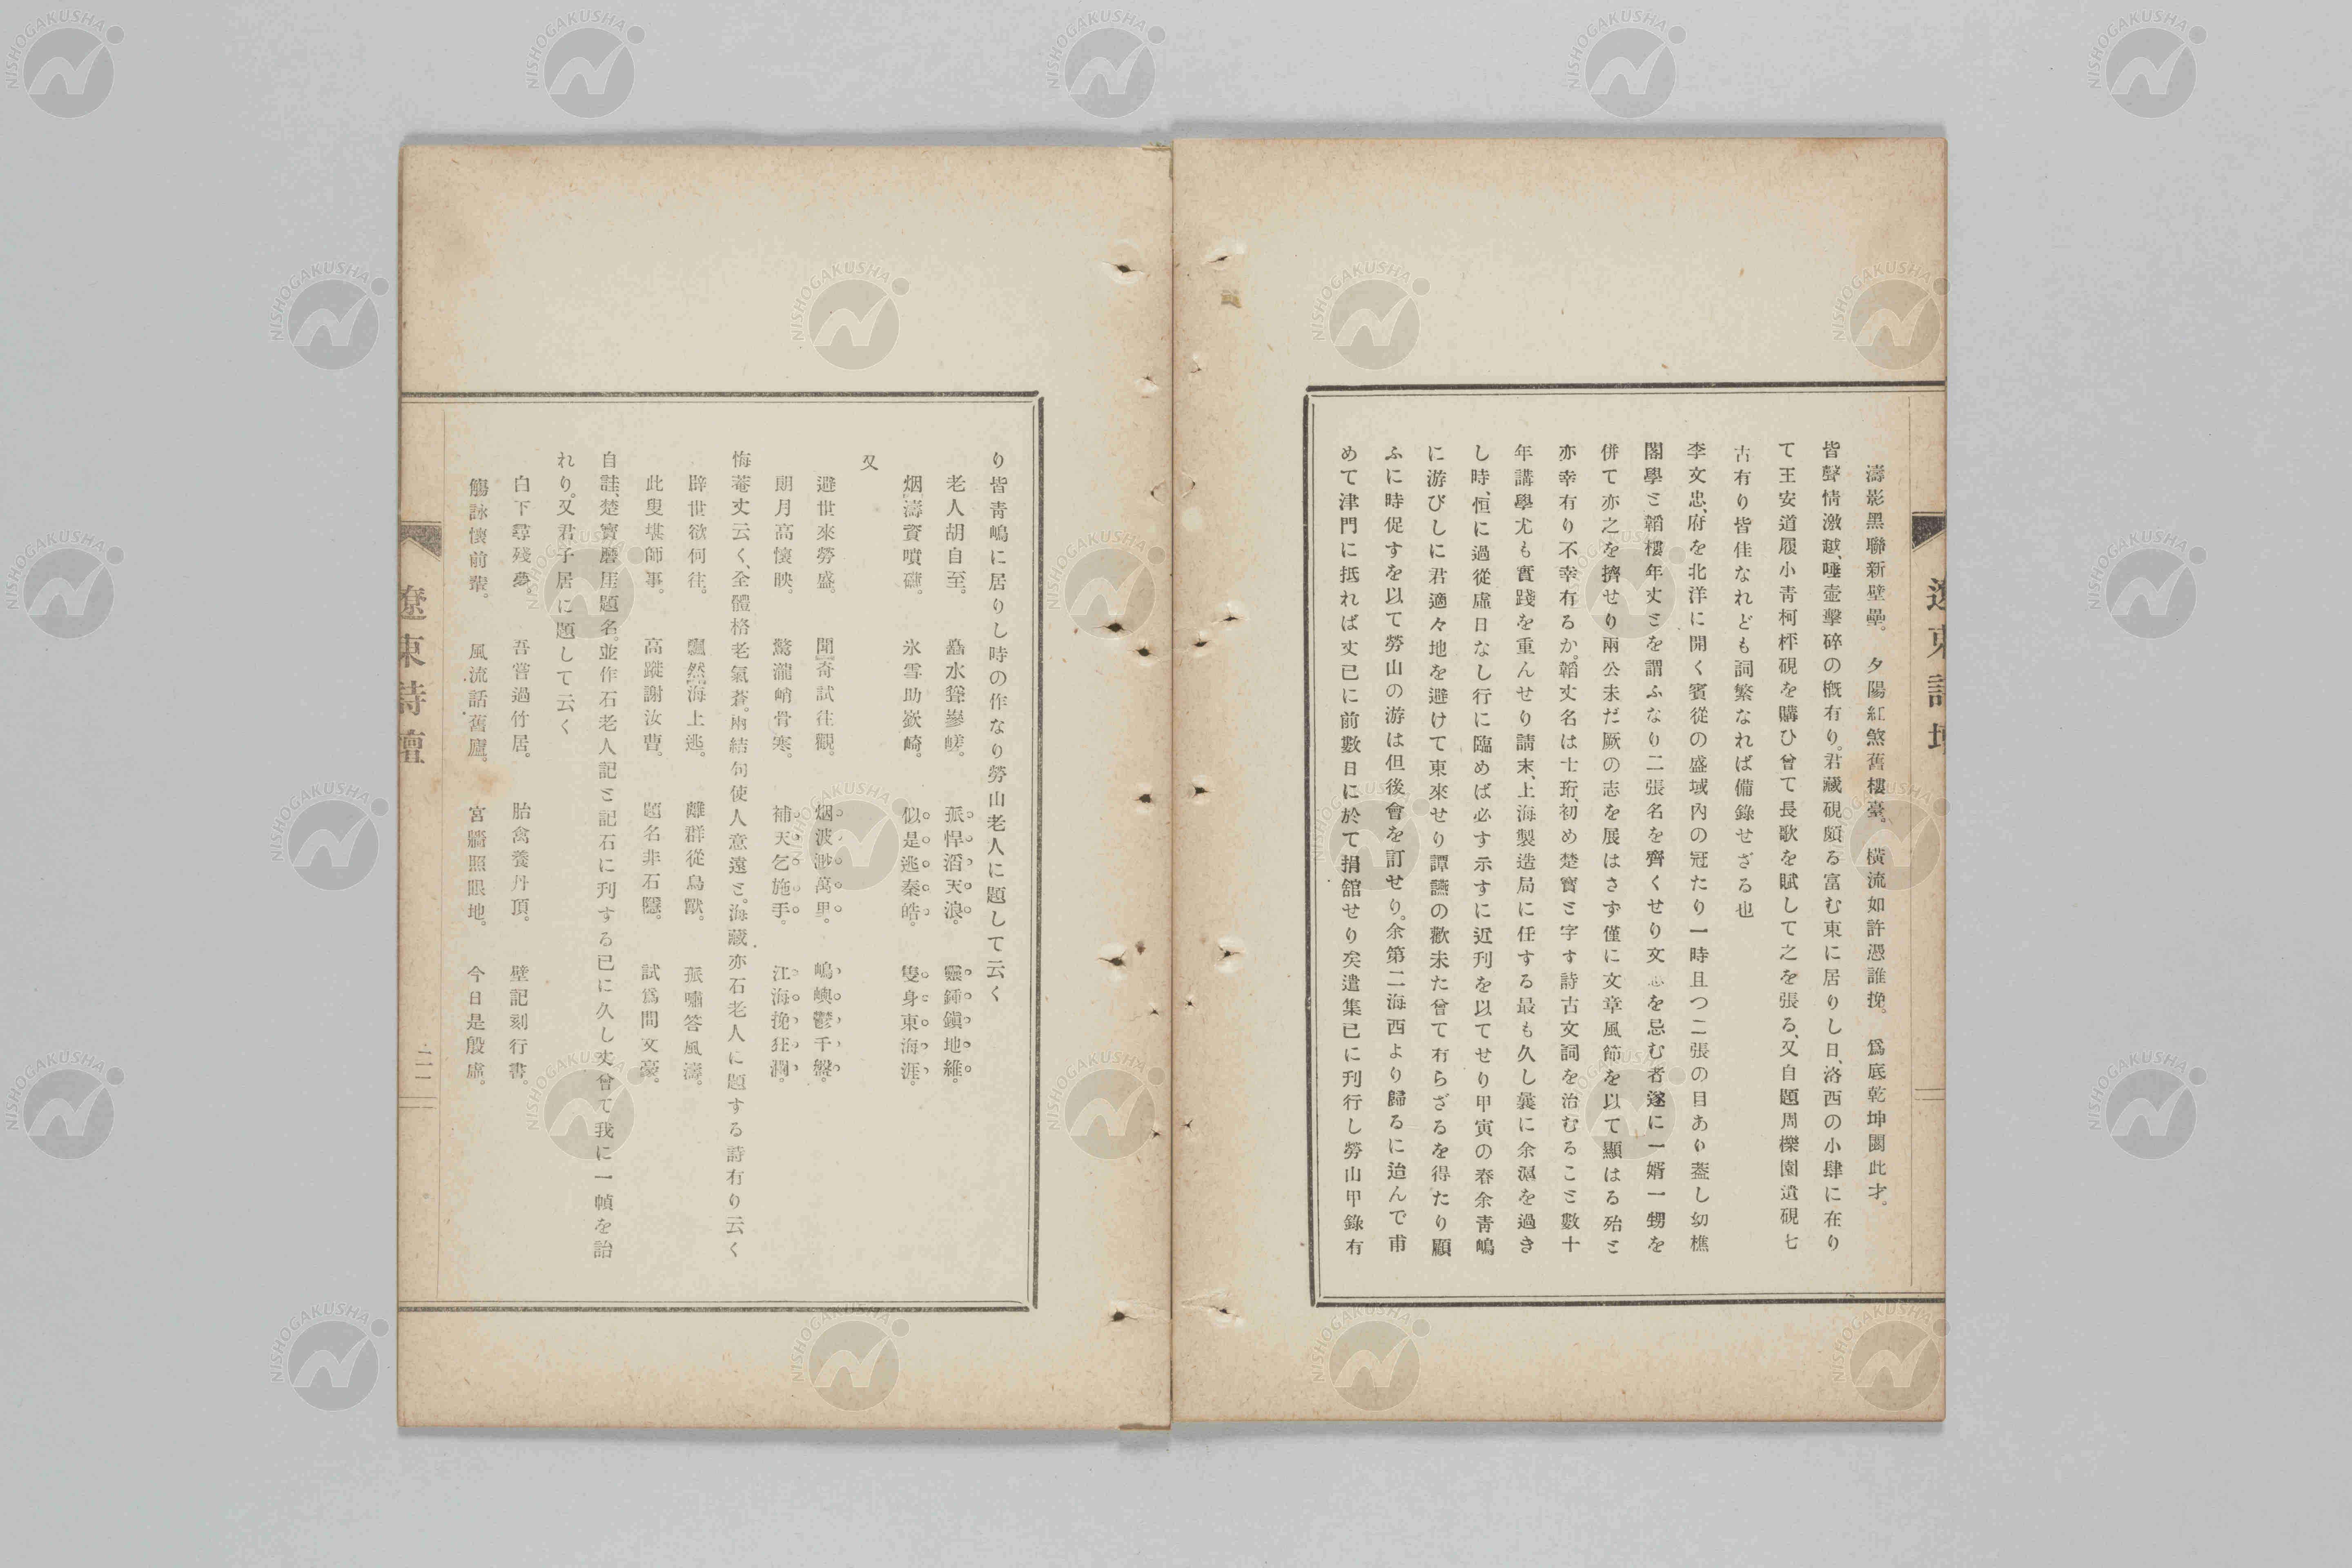 濤影黑聯新壁壘。夕陽紅煞舊樓臺。橫流如許憑誰挽。爲底乾坤閟此才。
皆聲情激越、唾壺擊碎の槪有り。君藏硯頗る富む東に居りし日、洛西の小肆に在り
て王安道履小靑柯枰硯を購ひ曾て長歌を賦して之を張る、又自題周櫟園遺硯七
古有り皆佳なれども詞繁なれば備錄せざる也
李文忠、府を北洋に開く賓從の盛域內の冠たり一時且つ二張の目あり蓋し幼樵
閣學と韜樓年丈とを謂ふなり二張名を齊くせり文忠を忌む者遂に一婿一甥を
併て亦之を擠せり兩公未だ厥の志を展はさず僅に文章風節を以て顯はる殆と
亦幸有り不幸有るか。韜丈名は士珩、初め楚寶と字す詩古文詞を治むること數十
年講學尤も實踐を重んせり請末、上海製造局に任する最も久し曩に余滬を過き
し時、恒に過從虛日なし行に臨めば必す示すに近刋を以てせり甲寅の春余靑嶋
に游びしに君適々地を避けて東來せり譚讌の歡未た曾て有らざるを得たり顧
ふに時促すを以て勞山の游は但後會を訂せり。余第二海西より歸るに迨んで甫
めて津門に抵れば丈已に前數日に於て捐館せり矣遺集已に刊行し勞山甲錄有
り皆靑嶋に居りし時の作なり勞山老人に題して云く
老人胡自至。矗水聳嵾嵯。孤悍滔天浪。靈鍾鎭地維。
烟濤賁噴礴。氷雪助嶔崎。似是逃秦皓。隻身東海涯。
又
避世來勞盛。聞奇試往觀。烟波渺萬里。嶋嶼鬱千盤。
朗月高懷映。驚瀧峭骨寒。補天乞施手。江海挽狂瀾。
悔菴丈云く、全體格老氣蒼。兩結句使人意遠と。海藏亦石老人に題する詩有り云く
辟世欲何往。飄然海上逃。離群從鳥獸。孤嘯答風濤。
此叟堪師事。高蹤謝汝曹。題名非石隱。試爲問文豪。
自註、楚寶磨厓題名。並作石老人記と記石に刋する已に久し丈曾て我に一幀を詒
れり。又君子居に題して云く
白下尋殘夢。吾嘗過竹居。胎禽養丹頂。壁記刻行書。
觴詠懷前輩。風流話舊廬。宮牆照眼地。今日是殷虛。
遼東詩壇
二一